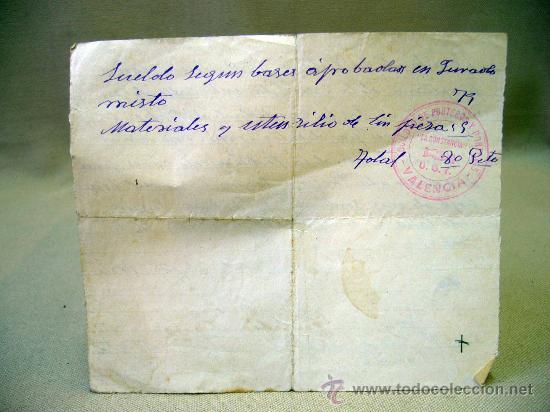 Sueldo segun bases aprobadas en Jurado
misto 75
Materiales y utensilio de limpieza 5
Total 80 Pets
LA CONSTANCIA
U. G. T.
VALENCIA
© todocoleccion
www.todocoleccion.net